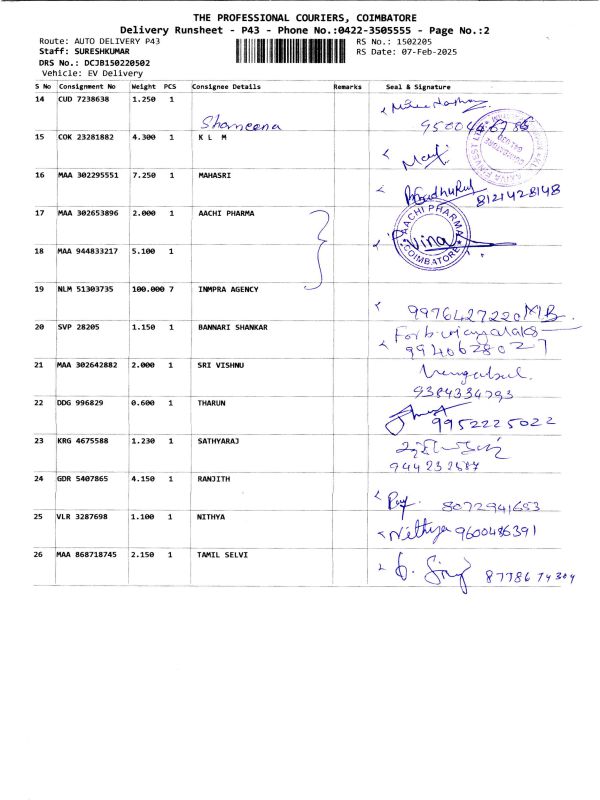 THE PROFESSIONAL COURIERS, COIMBATORE
Delivery Runsheet - P43 - Phone No.:0422-3505555 - Page No.:2
Route: AUTO DELIVERY P43 RS No.: 1502205
Staff: SURESHKUMAR RS Date: 07-Feb-2025
DRS No.: DCJB150220502
Vehicle: EV Delivery
S No Consignment No Weight PCS Consignee Details Remarks Seal & Signature
14 CUD 7238638 1.250 1
Shameena
15 COK 23281882 4.300 1 K L M
16 MAA 302295551 7.250 1 MAHASRI
8121428148
17 MAA 302653896 2.000 1 AACHI PHARMA
AACHI PHARMA
COIMBATORE
Vina
18 MAA 944833217 5.100 1
19 NLM 51303735 100.000 7 INMPRA AGENCY
9976427220
20 SVP 28205 1.150 1 BANNARI SHANKAR
9940628027
21 MAA 302642882 2.000 1 SRI VISHNU
9384334793
22 DDG 996829 0.600 1 THARUN
9952225022
23 KRG 4675588 1.230 1 SATHYARAJ
24 GDR 5407865 4.150 1 RANJITH
8072941653
25 VLR 3287698 1.100 1 NITHYA
Nithya 9600486391
26 MAA 868718745 2.150 1 TAMIL SELVI